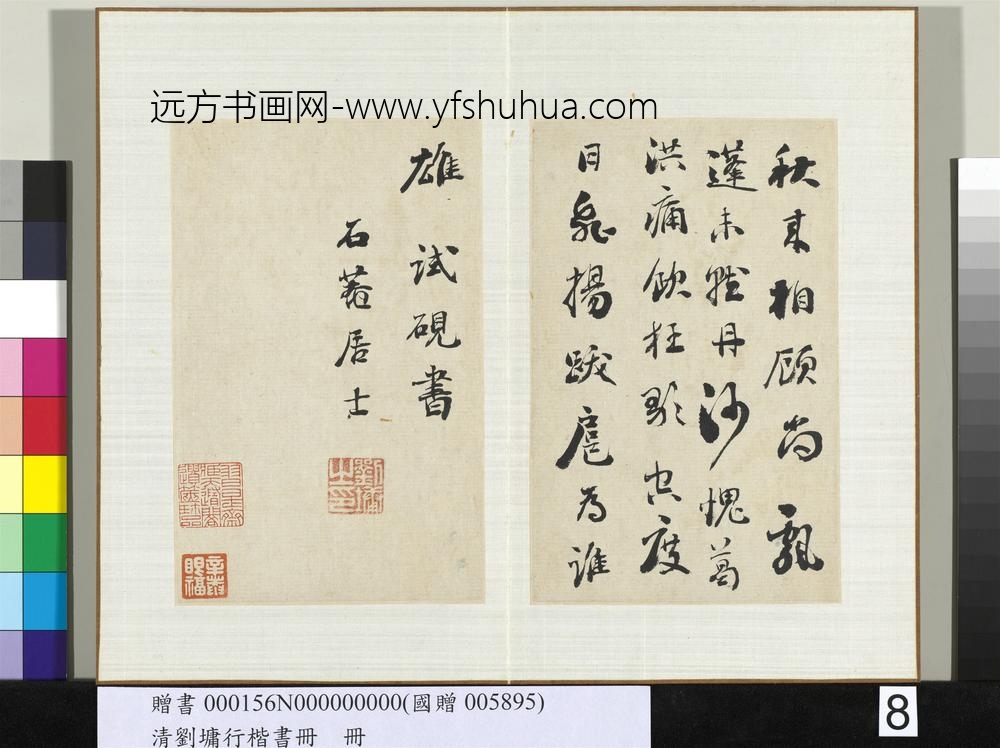 远方书画网-www.yfshuhua.com
秋来相顾尚飘
蓬未就丹沙愧葛
洪痛飲狂歌空度
日飛揚跋扈為誰
雄 试硯書
石菴居士
劉墉之印
贈書 000156N000000000(國贈 005895)
清劉墉行楷書冊 冊
8